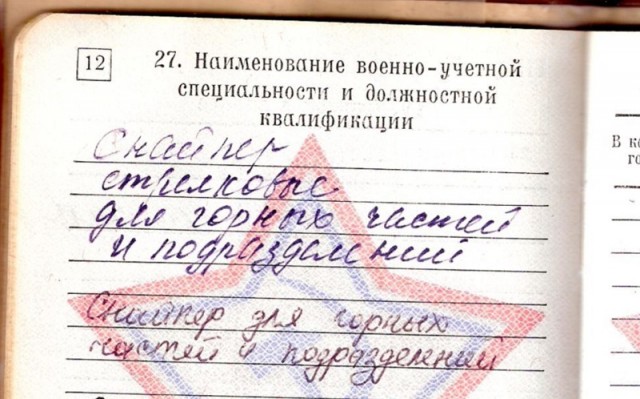 12
27. Наименование военно-учетной
специальности и должностной
квалификации
Снайпер
стрелковые
для горных частей
и подразделений
Снайпер для горных
частей и подразделений
В к
го